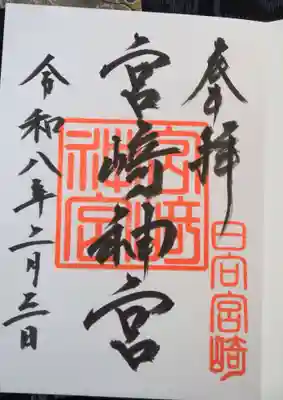 奉拝
日向宮崎
宮崎神宮
宮崎
神宮
令和八年二月三日